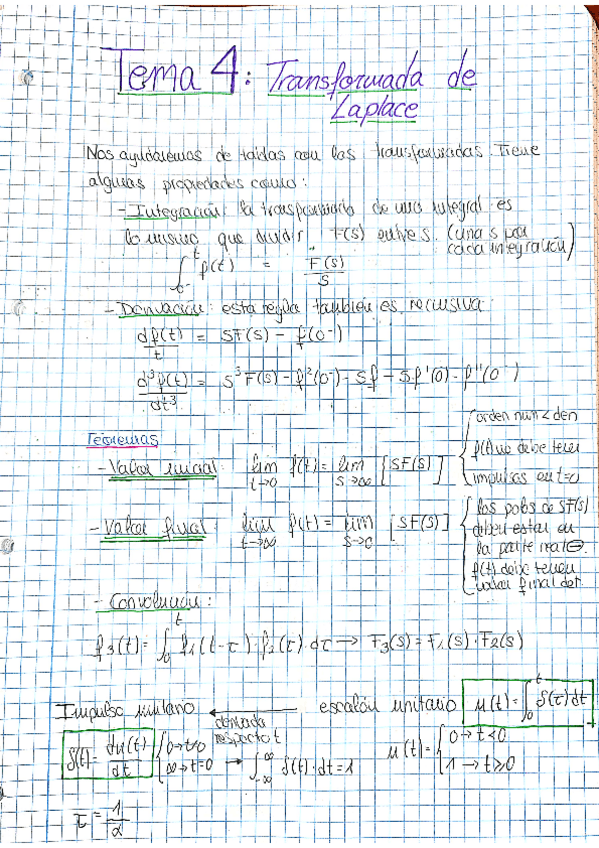 Tema 4: Transformada de
Laplace
Nos ayudaremos de tablas con las transformadas. Tiene
algunas propiedades como:
- Integración: la transformada de una integral es
lo mismo que dividir F(s) entre s. (una s por
cada integración)
∫₀₋ᵗ f(t) = F(s)/s
- Derivación: esta regla también es recursiva:
df(t)/t = SF(s) - f(0⁻)
d³f(t)/dt³ = s³F(s) - f²(0⁻) - sf - s.f'(0) - f''(0⁻)
Teoremas
- Valor inicial: lim t→0 f(t) = lim s→∞ [SF(s)] { orden num < den
f(t) no debe tener
impulsos en t=0
- Valor final: lim t→∞ f(t) = lim s→0 [SF(s)] { los polos de SF(s)
deben estar en
la parte real ⊖.
f(t) debe tener
valor final det.
- Convolución:
f₃(t) = ∫₀ᵗ f₁(t-τ)·f₂(τ)·dτ → F₃(s) = F₁(s)·F₂(s)
Impulso unitario ← escalón unitario μ(t) = ∫₀ᵗ δ(τ)dt
derivada
respecto t
δ(t) = du(t)/dt { 0→t≠0
∞→t=0 → ∫₋∞^∞ δ(t)·dt = 1
μ(t) = { 0→t<0
1→t≥0
τ = 1/2